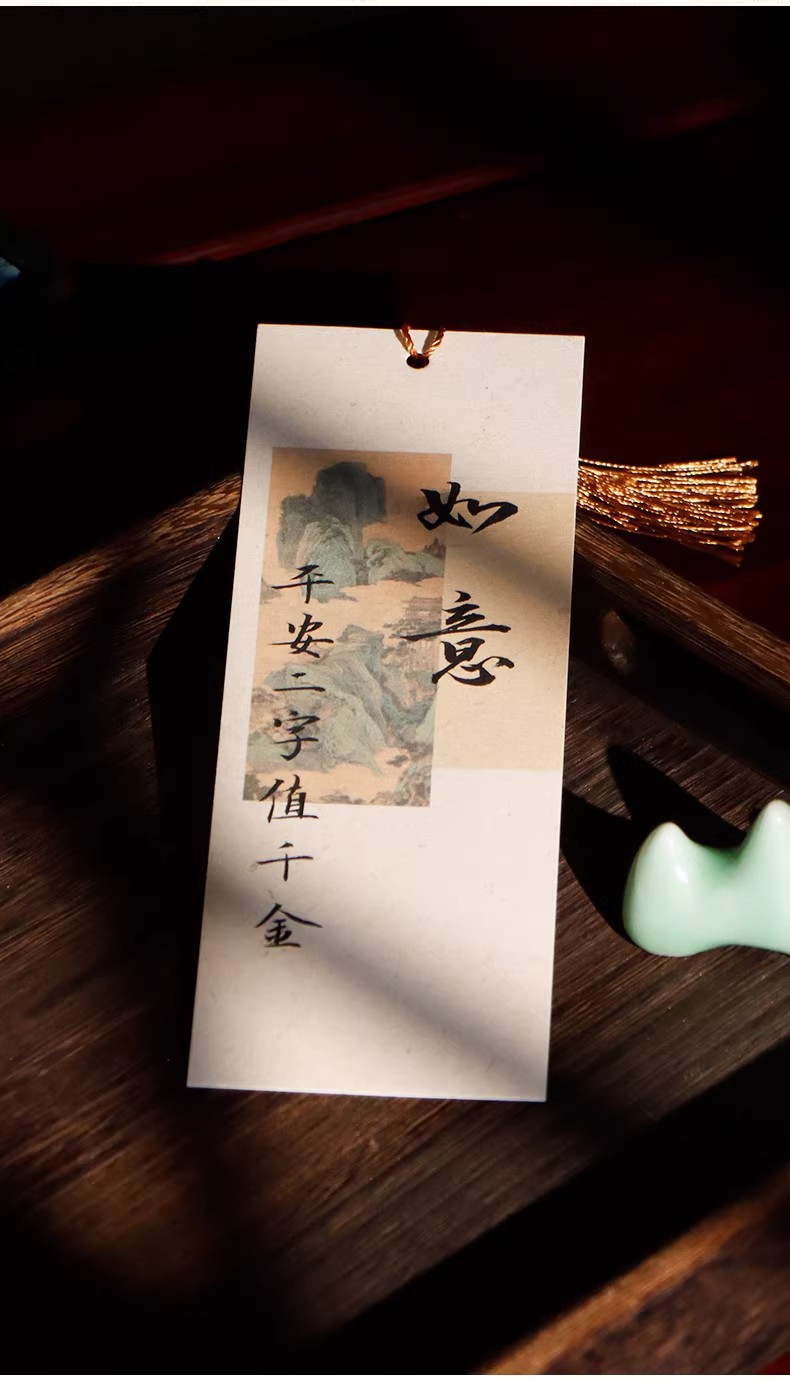 如意
平安二字值千金